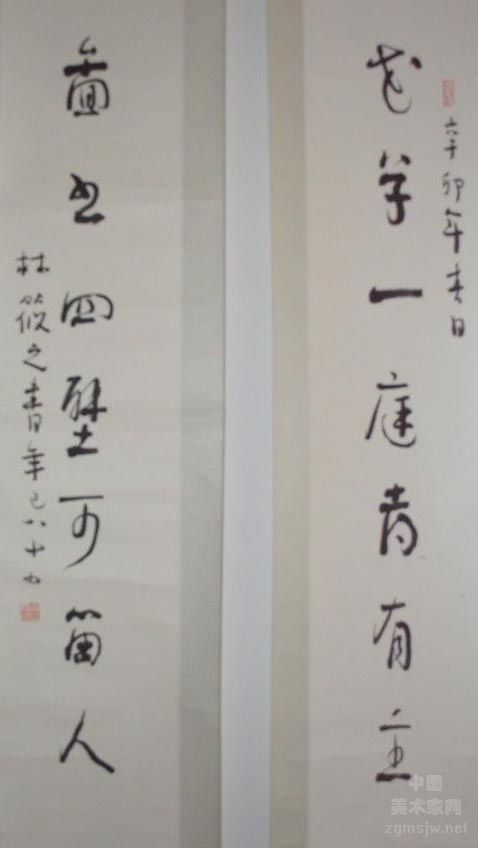 辛卯年春日
花草一庭春有主
圖書四壁可留人
林筱之書年已八十九
中国
美术家网
zgmsjw.net